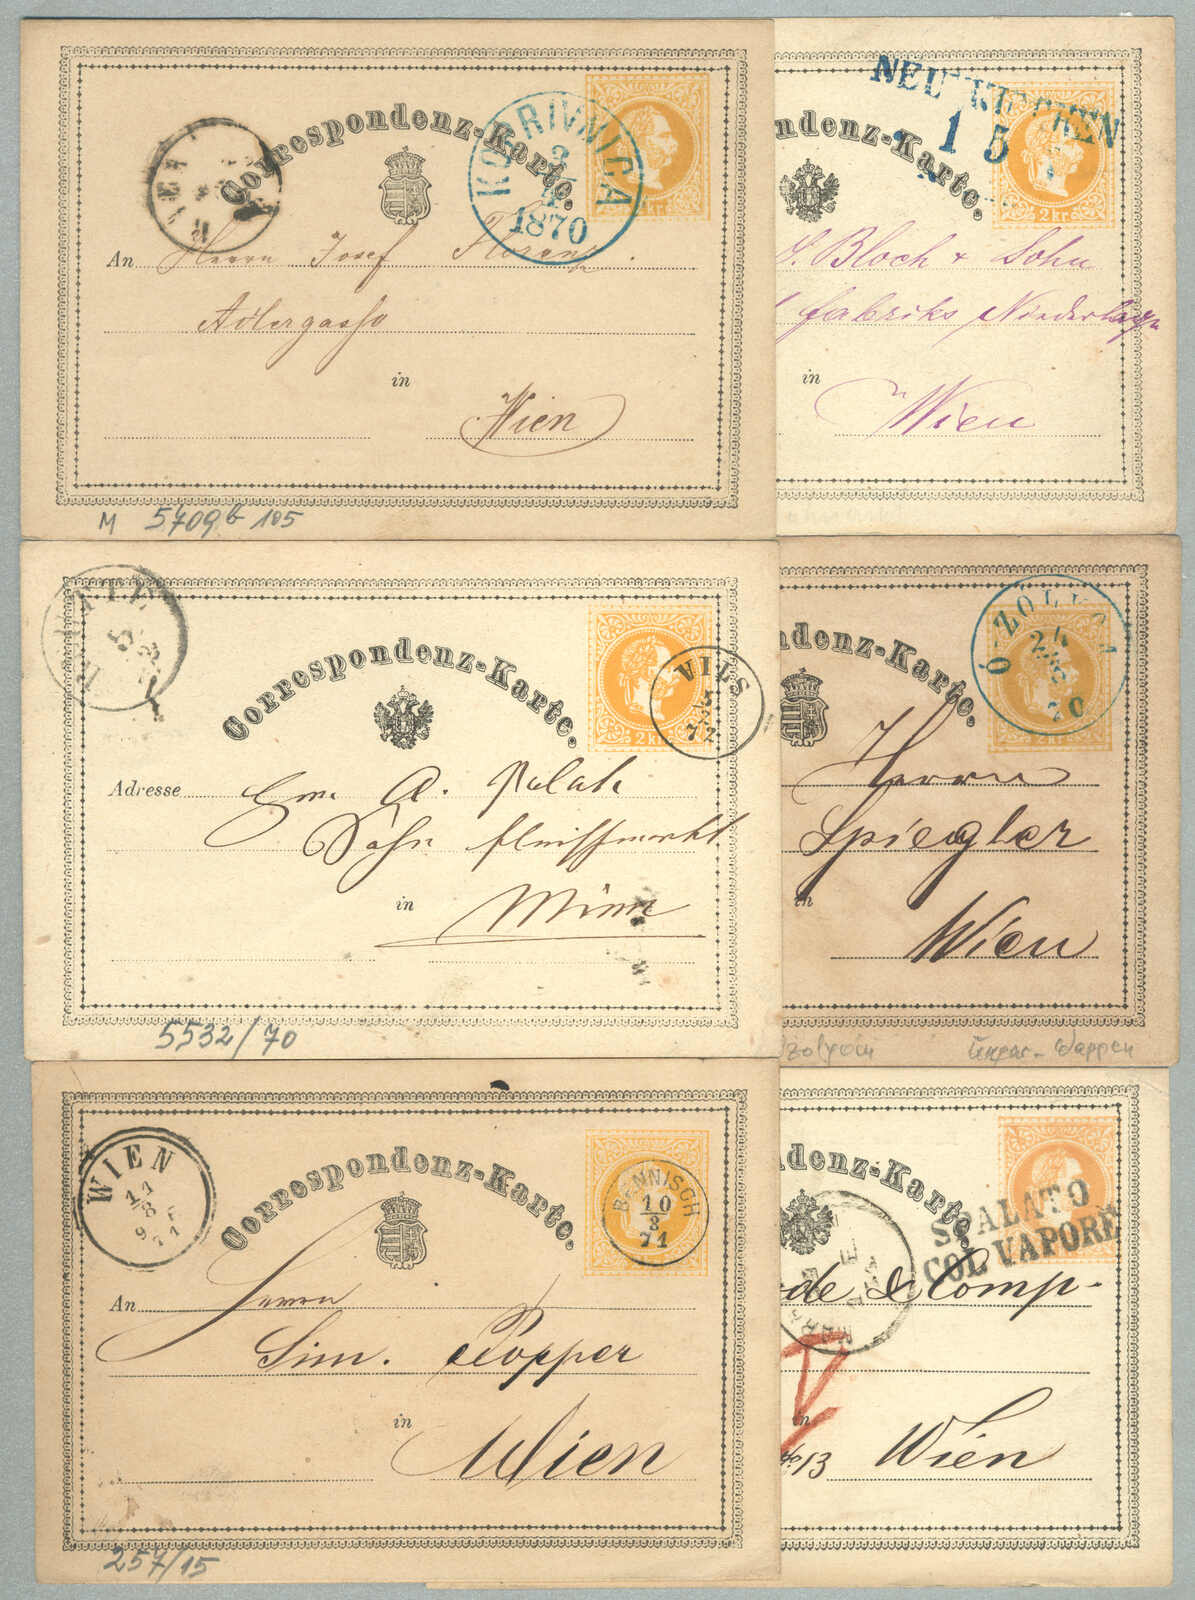 Correspondenz-Karte.
KOPRIVNICA
3
1870
An Herrn Josef Florenz.
Adlergasse
in
Wien
M 5709b 105
ndenz-Karte.
NEUNKIRCHEN
1 5
2 kr.
S. Bloch & Sohn
fabriks Niederlage
in
Wien
Correspondenz-Karte.
REUTTE
5
VILS
5
72
2 kr.
Adresse
in
Wien
5532/70
denz-Karte.
Ó-ZOLYOM
24
70
2 kr.
Herrn
Spiegler
in
Wien
Zolyom Ungar-Wappen
Correspondenz-Karte.
WIEN
11
8
9 F
71
BENNISCH
10
3
71
An Herrn
Sim. Popper
in
Wien
257/15
denz-Karte.
SPALATO
COL VAPORE
de & Comp-
in
13 Wien